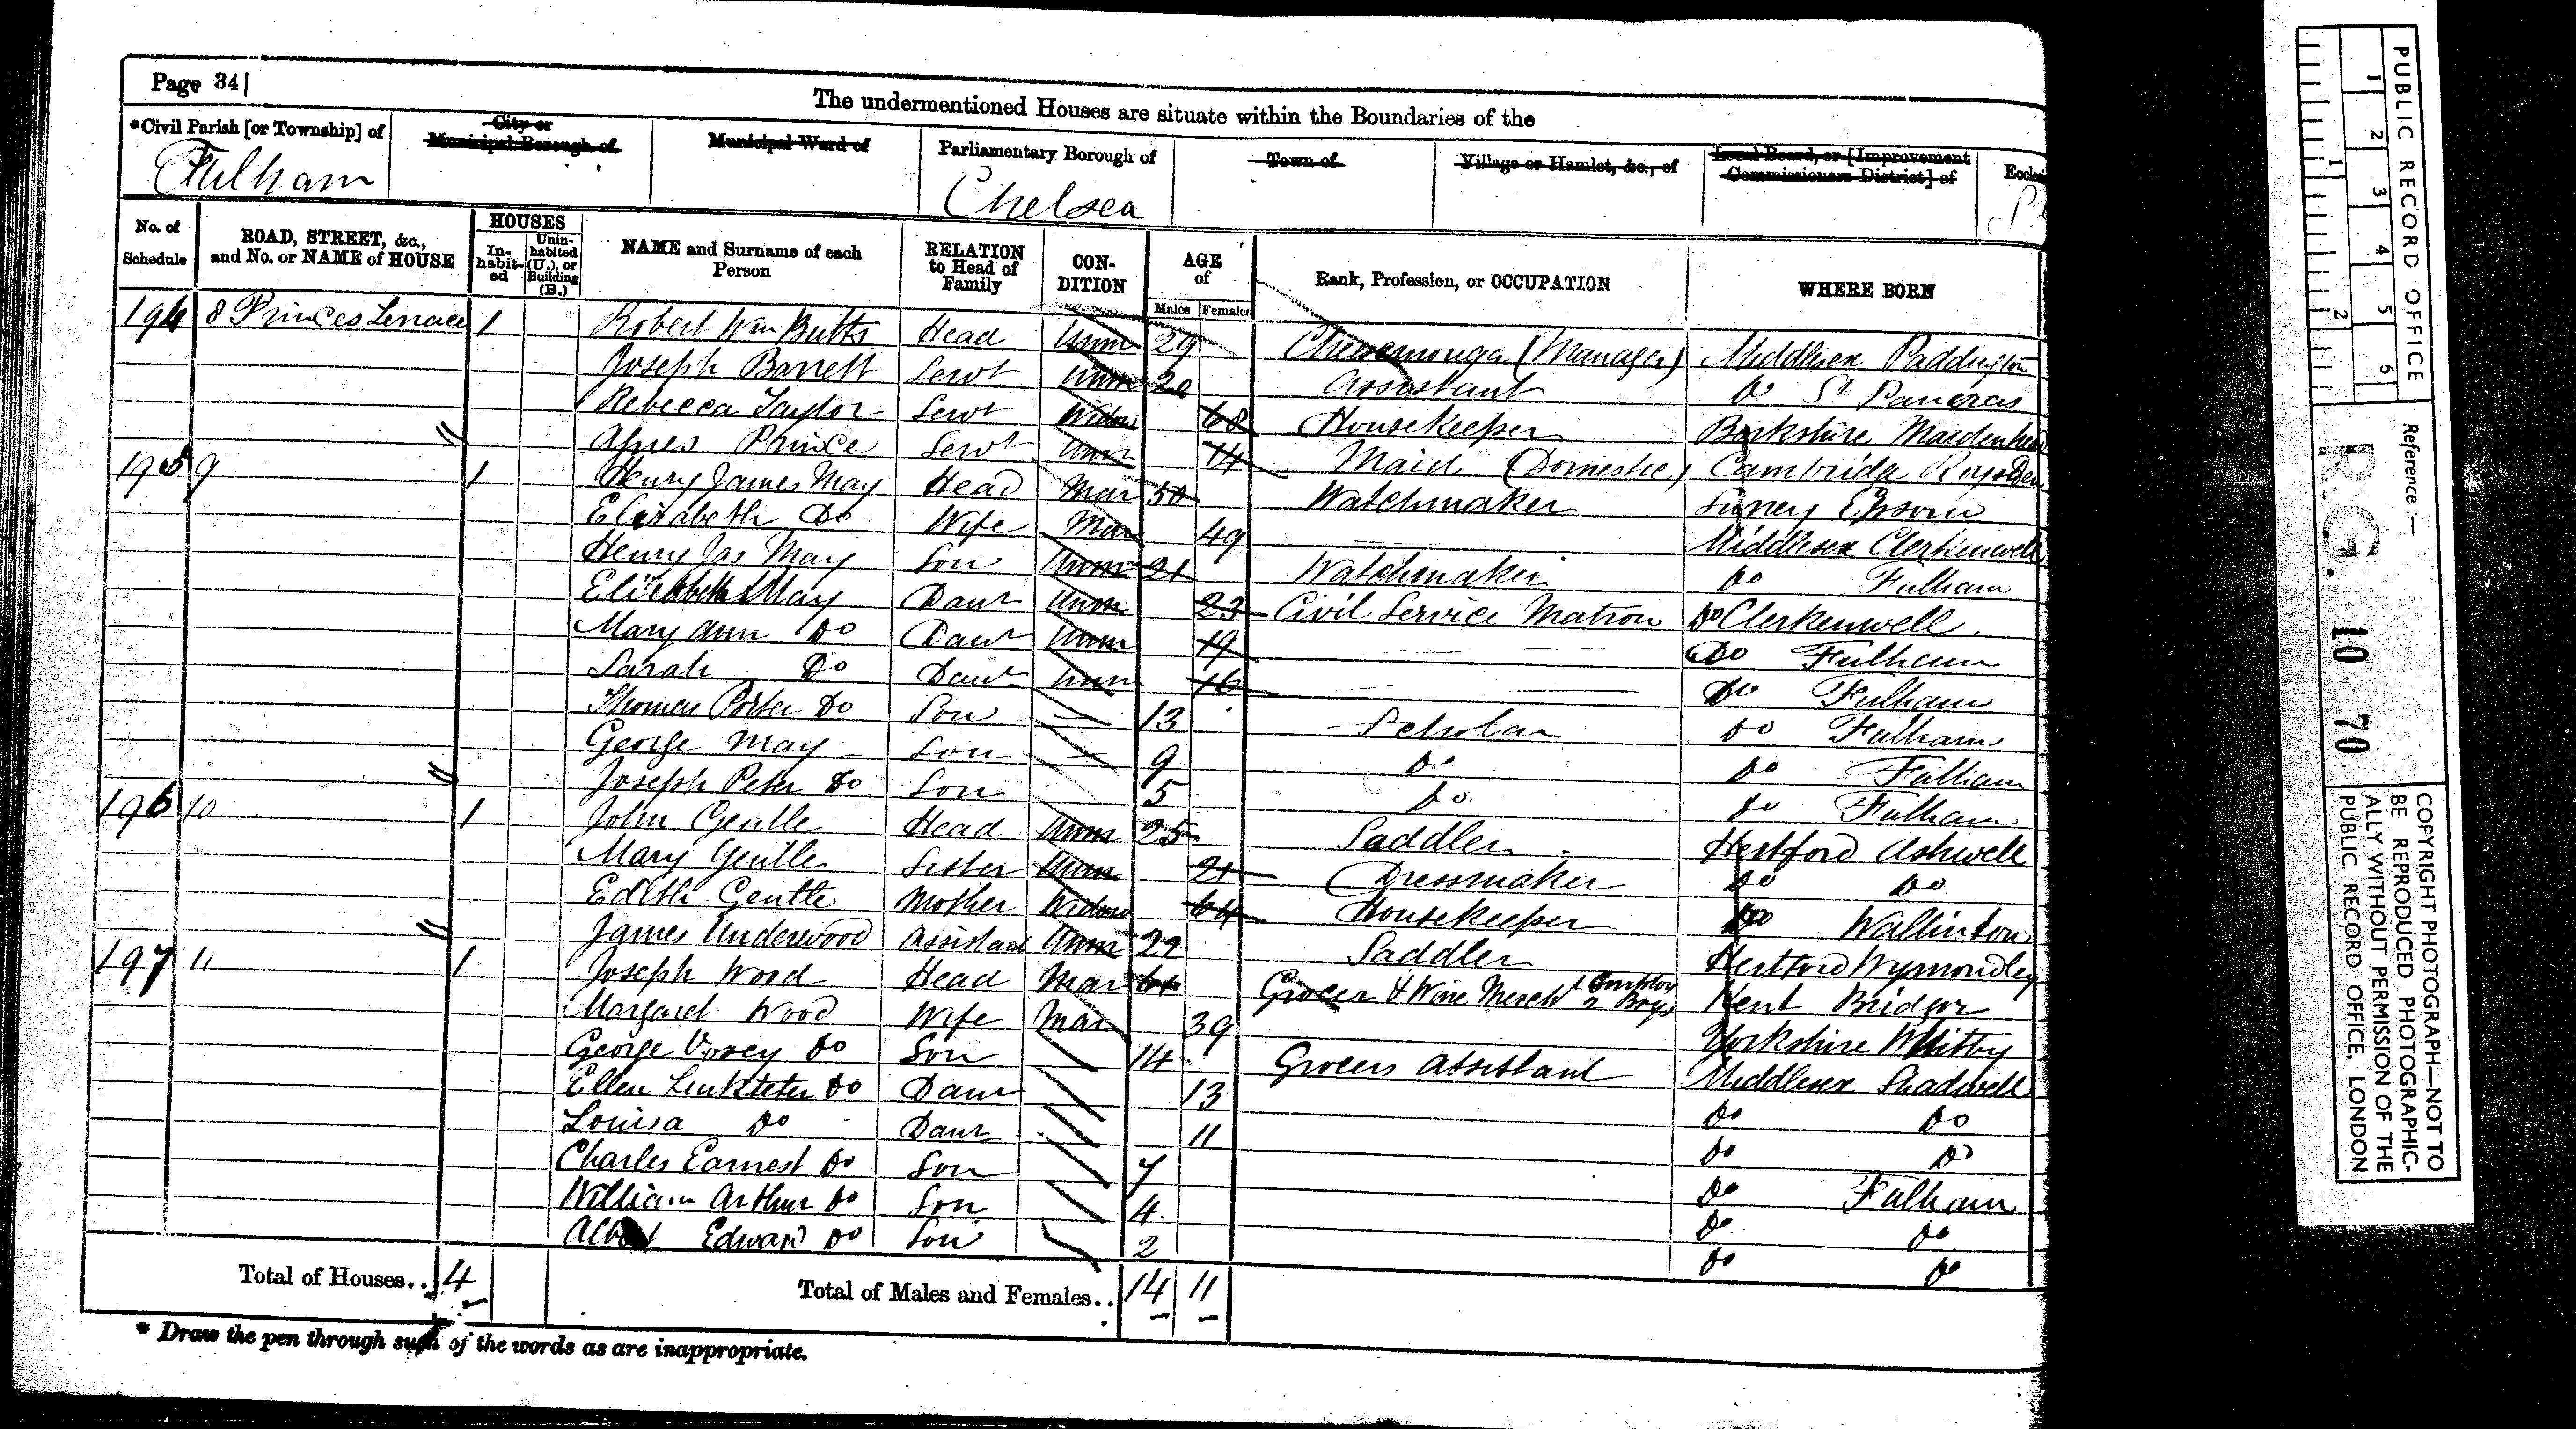 Page 34
The undermentioned Houses are situate within the Boundaries of the
*Civil Parish [or Township] of
City or Municipal Borough of
Municipal Ward of
Parliamentary Borough of
Town of
Village or Hamlet, &c., of
Local Board, or [Improvement Commissioners District] of
Fulham
Chelsea
No. of Schedule
ROAD, STREET, &c., and No. or NAME of HOUSE
HOUSES
In-habit-ed
Unin-habited (U.), or Building (B.)
NAME and Surname of each Person
RELATION to Head of Family
CON-DITION
AGE of
Males
Females
Rank, Profession, or OCCUPATION
WHERE BORN
194 8 Princes Terrace 1 Robert Wm Butts Head Unm 29 Cheesemonger (Manager) Middlesex Paddington
Joseph Barrett Servt Unm 20 Assistant Do St Pancras
Rebecca Taylor Servt Widow 68 Housekeeper Berkshire Maidenhead
Agnes Prince Servt Unm 14 Maid (Domestic) Cambridge
195 9 1 Henry James May Head Mar 50 Watchmaker Surrey Epsom
Elizabeth Do Wife Mar 49 Middlesex Clerkenwell
Henry Jas May Son Unm 21 Watchmaker Do Fulham
Elizabeth May Daur Unm 23 Civil Service Matron Do Clerkenwell
Mary Ann Do Daur Unm 19 Do Fulham
Sarah Do Daur Unm 16 Do Fulham
Thomas Porter Do Son 13 Scholar Do Fulham
George May Son 9 Do Do Fulham
Joseph Peter Do Son 5 Do Do Fulham
196 10 1 John Gentle Head Unm 25 Saddler Hertford Ashwell
Mary Gentle Sister Unm 21 Dressmaker Do Do
Edith Gentle Mother Widow 64 Housekeeper Do Wallinton
James Underwood Assistant Unm 22 Saddler Hertford Wymondley
197 11 1 Joseph Wood Head Mar Grocer & Wine Mercht Employ 2 Boys Kent
Margaret Wood Wife Mar 39 Yorkshire Whitby
George Vosey Do Son 14 Grocers Assistant Middlesex Shadwell
Ellen Do Daur 13 Do Do
Louisa Do Daur 11 Do Do
Charles Earnest Do Son 7 Do Fulham
William Arthur Do Son 4 Do Do
Albert Edward Do Son 2 Do Do
Total of Houses.. 4
Total of Males and Females.. 14 11
* Draw the pen through such of the words as are inappropriate.
PUBLIC RECORD OFFICE
1 2 3 4 5 6
1 2
Reference :—
R.G. 10 70
COPYRIGHT PHOTOGRAPH—NOT TO
BE REPRODUCED PHOTOGRAPHIC-
ALLY WITHOUT PERMISSION OF THE
PUBLIC RECORD OFFICE, LONDON